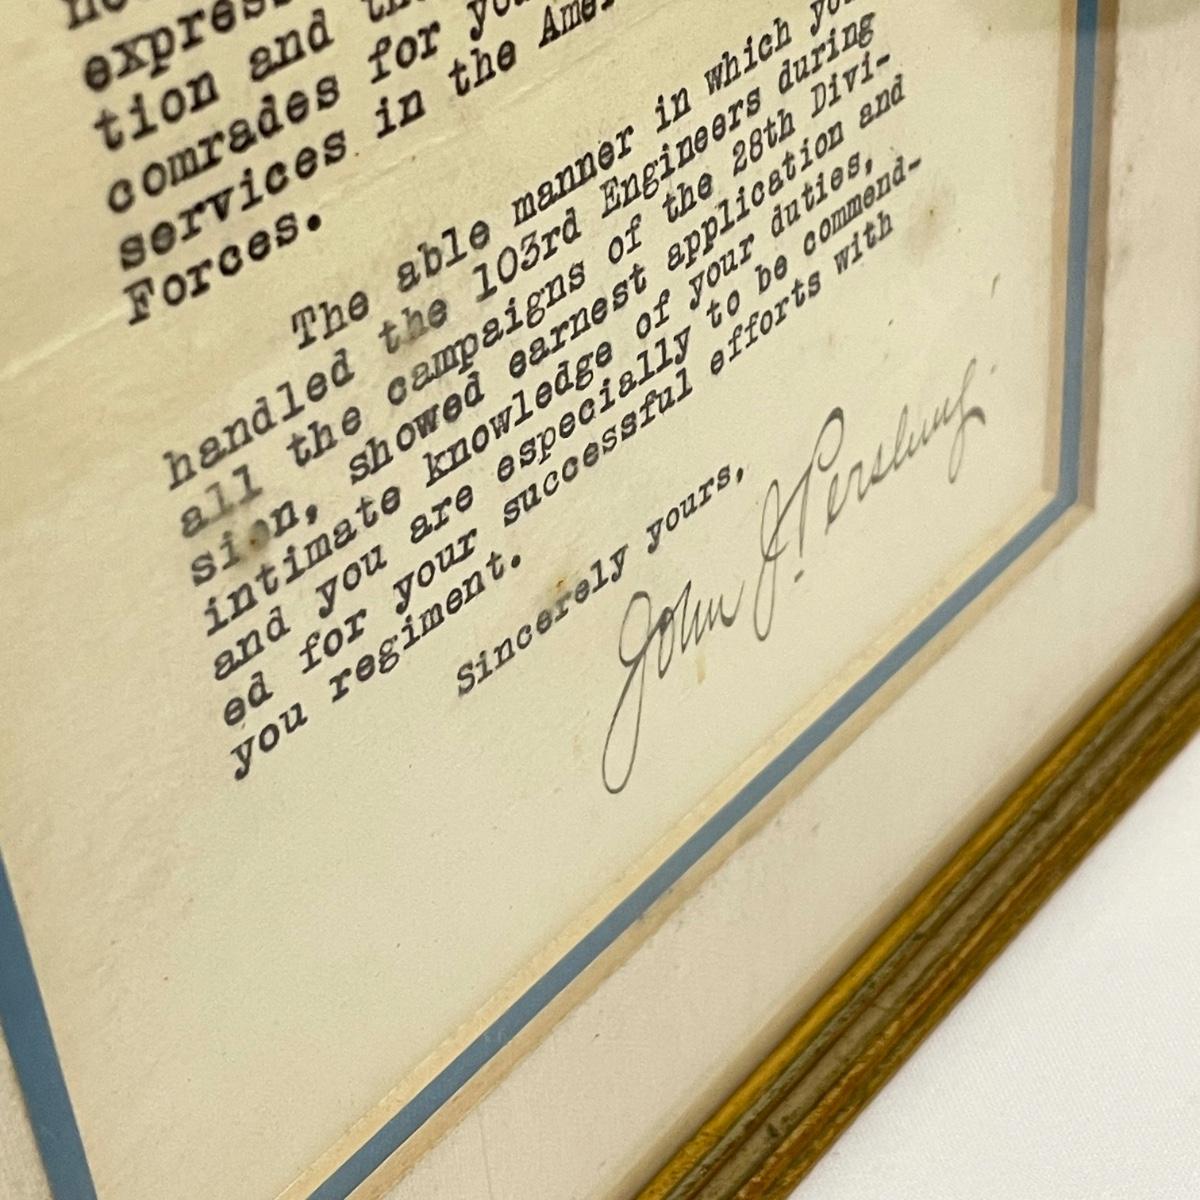 tion and
comrades for
services in the
Forces.
The able manner in which
handled the 103rd Engineers during
all the campaigns of the 28th Divi-
sion, showed earnest application and
intimate knowledge of your duties,
and you are especially to be commend-
ed for your successful efforts with
you regiment.
Sincerely yours,
John J. Pershing.